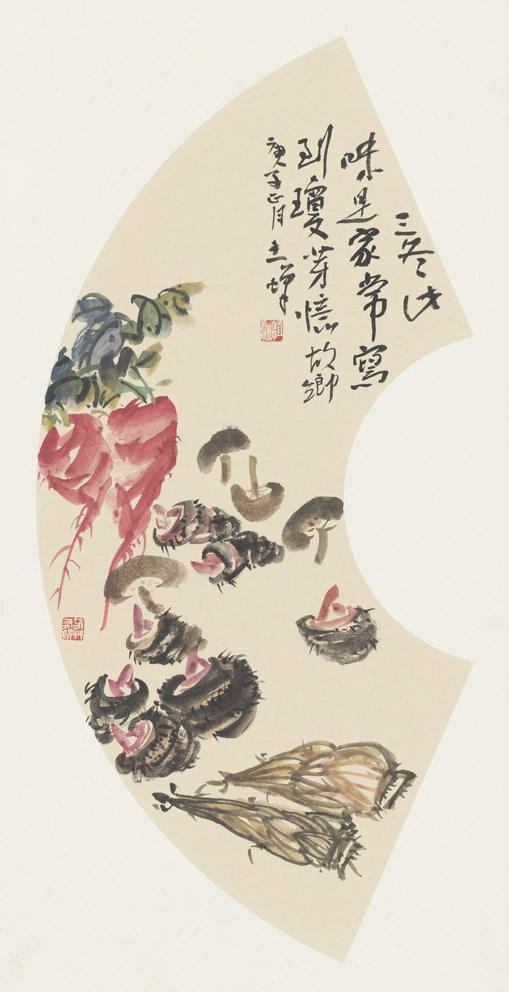 三冬此
味是家常寫
到瓊芽憶故鄉
庚子正月